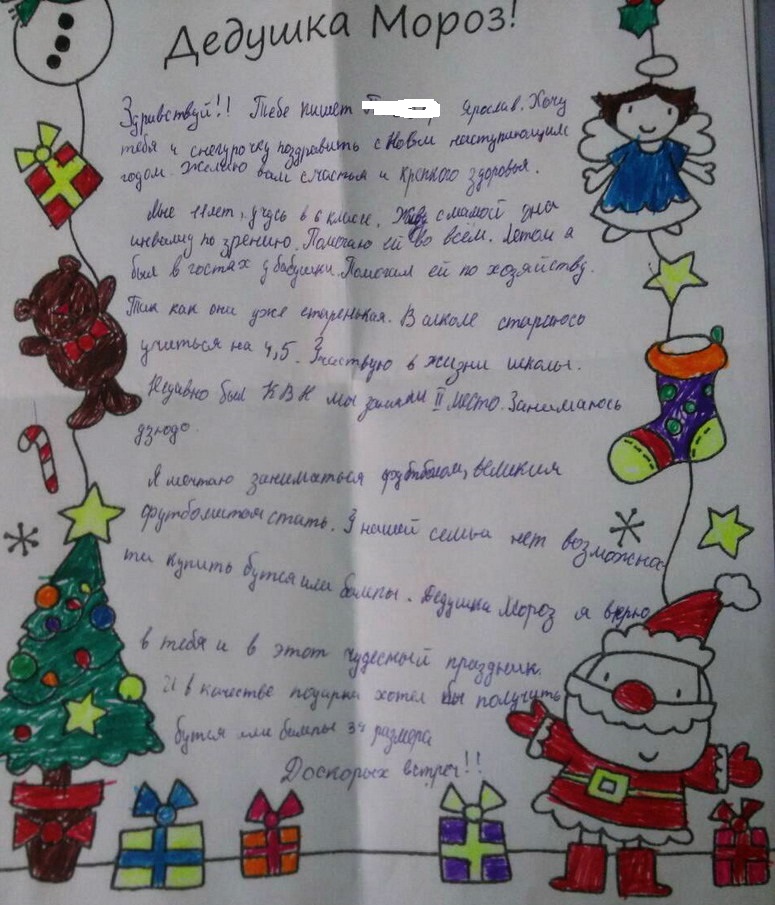 Дедушка Мороз!
Здравствуй!! Тебе пишет Ярослав. Хочу
тебя и снегурочку поздравить с Новым наступающим
годом. Желаю вам счастья и крепкого здоровья.
Мне 11 лет, учусь в 6 класе. Живу с мамой она
инвалид по зрению. Помогаю ей во всём. Летом я
был в гостях у бабушки. Помогал ей по хозяйству.
Так как они уже старенькая. В школе стараюсь
учиться на 4,5. Участвую в жизни школы.
Недавно был КВН мы заняли II место. Занимаюсь
дзюдо.
Я мечтаю заниматься футболом, великим
футболистом стать. У нашей семьи нет возможна-
ти купить бутся или бампы. Дедушка Мороз я верю
в тебя и в этот чудесный праздник.
И в качестве подарка хотел бы получить
бутся или бампы 34 размера
Доскорых встреч!!